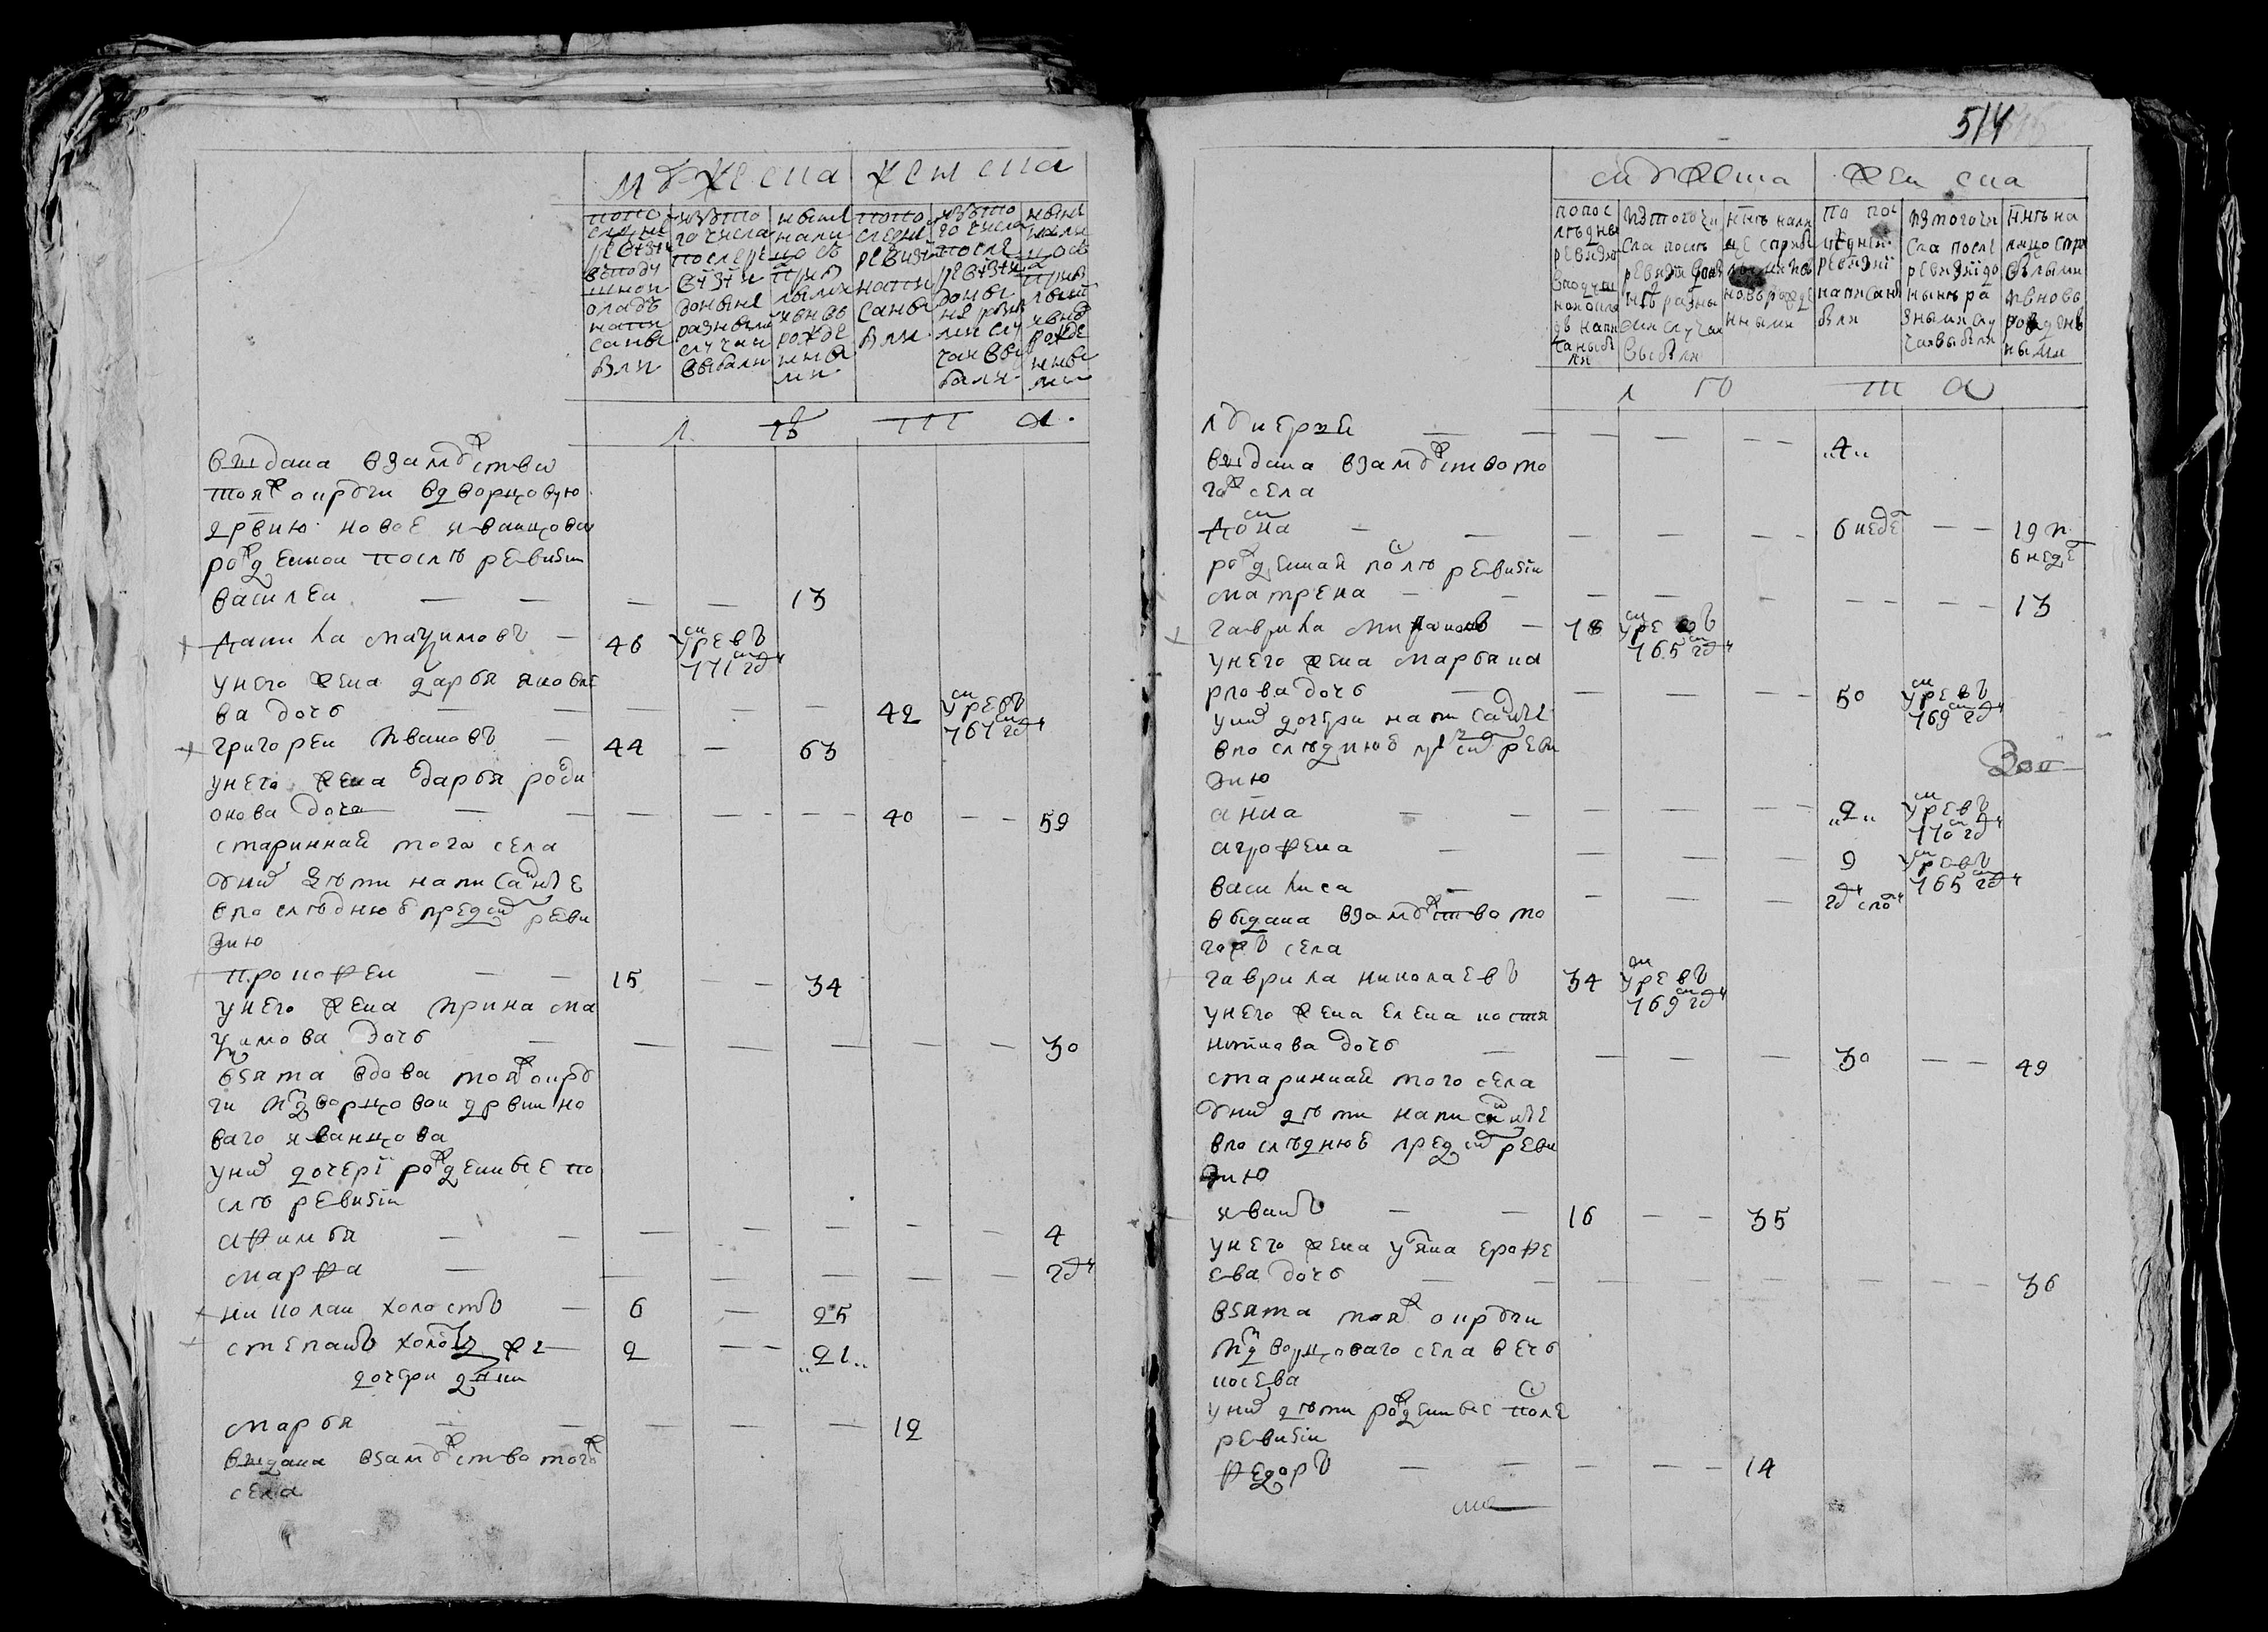 мужеска женска
попо
следне
ревизи
в подуш
ной
окладъ
напи
саны
были
изъ то
го числа
после ре
визи
доныне
разными
случаи
выбыли
ныне
нали
цо съ
при
былы
и внов
рожде
ны
ми
попо
следне
ревизи
напи
саны
были
изъ то
го числа
после
ревизи
доны
не разн
ми слу
чаи вы
были
ныне
нали
цо съ
при
былы
и внов
рожде
ны
ми
л ѣ т а
выдана взамужство
тояж округи вдворцовую
дрвню новое иванцово
рожденной послѣ ревизiи
василеи — — — — 13
+ данила маѯимовъ — 46 умре въ 771 гд
унего жена дарья яковле
ва дочь — — — — — 42 умре въ 767 гд
+ григореи ивановъ — 44 — 63
унего жена дарья роди
онова дочь — — — — — 40 — — 59
стариннай того села
уних дѣти написанные
впослѣднюю пред сим реви
зию
прокофеи — — 15 — — 34
унего жена ирина ма
ѯимова дочь — — — — — — 30
взята вдова тояж окру
ги из дворцовои дрвни но
ваго иванцова
уних дочерi рожденные по
слѣ ревизiи
афимья — — — — — — — 4
марфа — — — — — — гд
+ николаи холостъ — 6 — 25
+ степанъ холостъ же — 2 — — 21
дочери
марья — — — — — 12
выдана взамужство тогож
села
514
мужеска женска
попос
лѣдне
ревизiи
вподуш
номокла
дѣ напи
саны бы
ли
изтогочи
сла послѣ
ревизiи доны
нѣ разны
ми случаи
выбыли
ннѣ нали
це с прибы
лыми и
новорожде
нными
по пос
лѣднеи
ревизiи
написаны
были
изтогочи
сла послѣ
ревизiи до
нынѣ ра
зными слу
чаи выбыли
ннѣ на
лицо с при
былыми
и вновь
рожден
ными
л ѣ т а
лукерья — — — — — — 4
выдана взамужство то
гож села
домна — — — — — 6 неде — — 19 и
рожденная послѣ ревизiи 6 неде
матрена — — — — — — — — 13
+ гаврила — 78 умре въ 765 гд
унего жена марья ка
рпова дочь — — — — 50 умре въ 769 гд
уних дочери написанные
впослѣднюю пред сим реви
зию
анна — — — — — 2 умре въ 770 гд
агрофена — — — — 9 умре въ 765 гд
василиса — — — — гд спол
выдана взамужство то
гожъ села
гаврила николаевъ 34 умре въ 769 гд
унего жена елена костя
нтинова дочь — — — — 30 — — 49
стариннай того села
уних дѣти написанные
впослѣднюю пред сим реви
зию
иванъ — — 16 — — 35
унего жена уляна ерофе
ева дочь — — — — — — — — 36
взята тояж округи
из дворцоваго села
уних дѣти рожденные послe
ревизiи
федоръ — — — — — 14